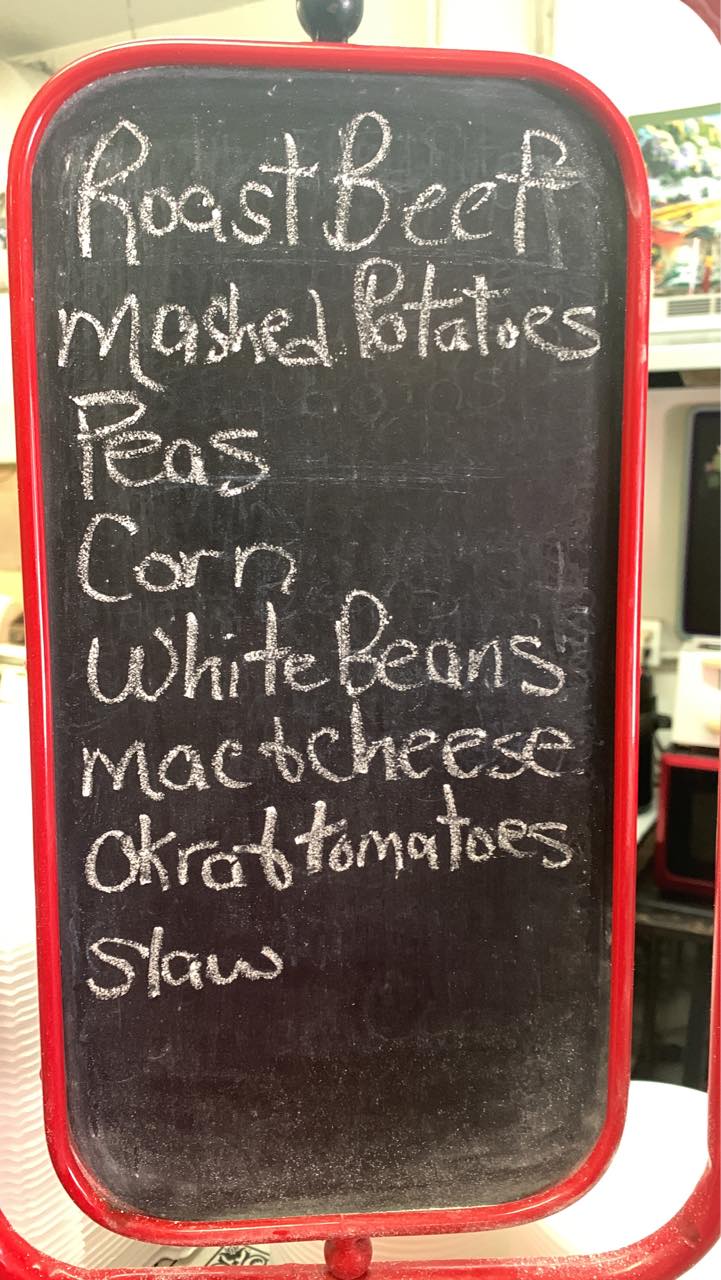 Roast Beef
Mashed Potatoes
Peas
Corn
White Beans
Mac & Cheese
Okra & tomatoes
Slaw